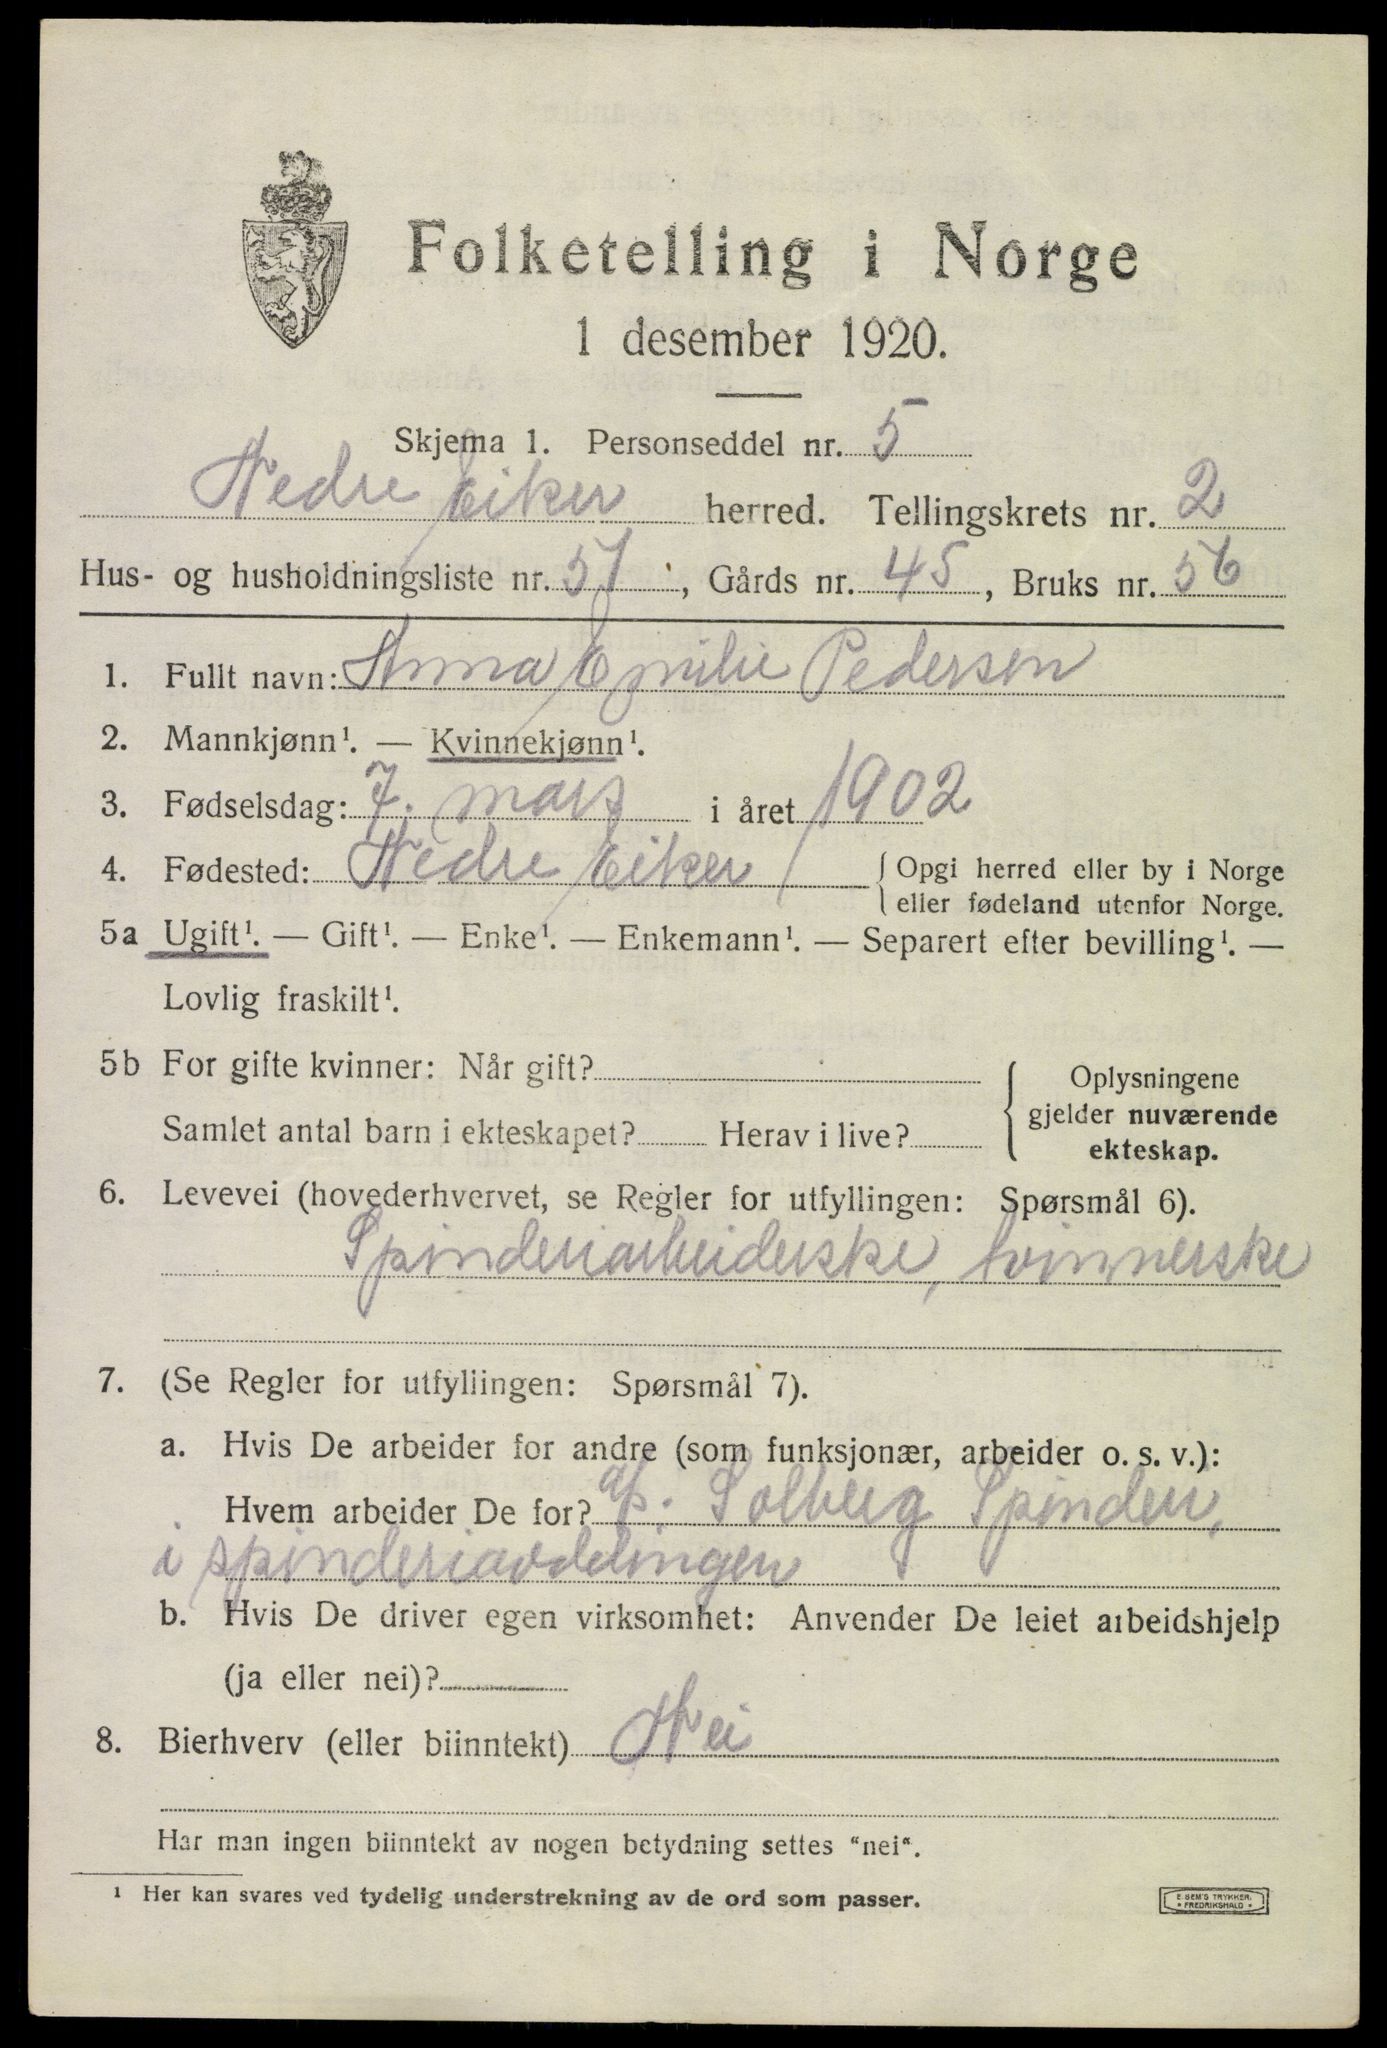 Folketelling i Norge
1 desember 1920.
Skjema 1. Personseddel nr. 5
Nedre Eiker herred. Tellingskrets nr. 2
Hus- og husholdningsliste nr. 51, Gårds nr. 45, Bruks nr. 56
1. Fullt navn: Anna Emilie Pedersen
2. Mannkjønn¹. — Kvinnekjønn¹.
3. Fødselsdag: 7. mars i året 1902
4. Fødested: Nedre Eiker { Opgi herred eller by i Norge
eller fødeland utenfor Norge.
5a Ugift¹. — Gift¹. — Enke¹. — Enkemann¹. — Separert efter bevilling¹. —
Lovlig fraskilt¹.
5b For gifte kvinner: Når gift?
Samlet antal barn i ekteskapet? Herav i live?
{ Oplysningene
gjelder nuværende
ekteskap.
6. Levevei (hovederhvervet, se Regler for utfyllingen: Spørsmål 6).
Spinderiarbeiderske, tvinnerske
7. (Se Regler for utfyllingen: Spørsmål 7).
a. Hvis De arbeider for andre (som funksjonær, arbeider o. s. v.):
Hvem arbeider De for? A/s. Solberg Spinderi,
i spinderiavdelingen
b. Hvis De driver egen virksomhet: Anvender De leiet arbeidshjelp
(ja eller nei)?
8. Bierhverv (eller biinntekt) Nei
Har man ingen biinntekt av nogen betydning settes "nei".
¹ Her kan svares ved tydelig understrekning av de ord som passer.
E. SEM'S TRYKKERI
* FREDRIKSHALD *